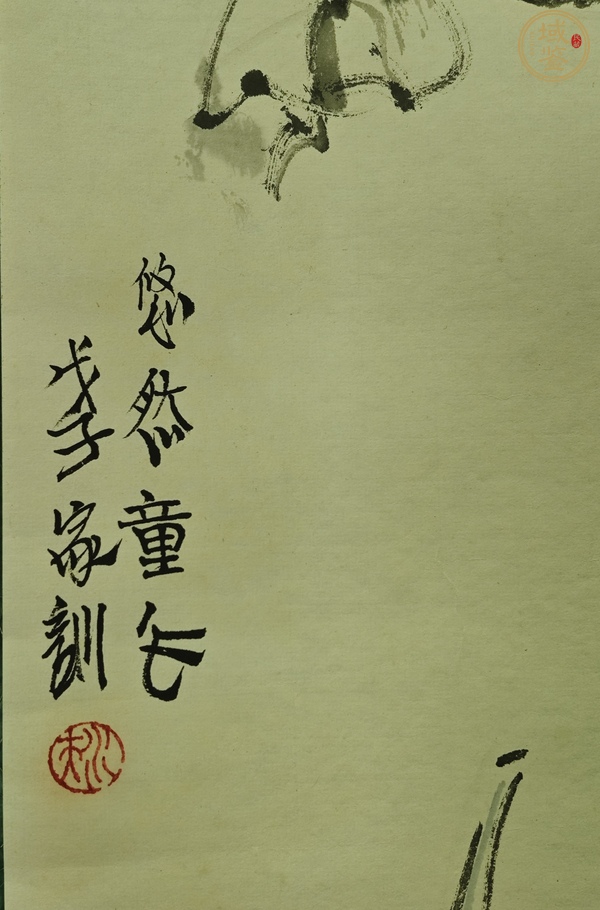 悠然童
戊子家訓
域鉴